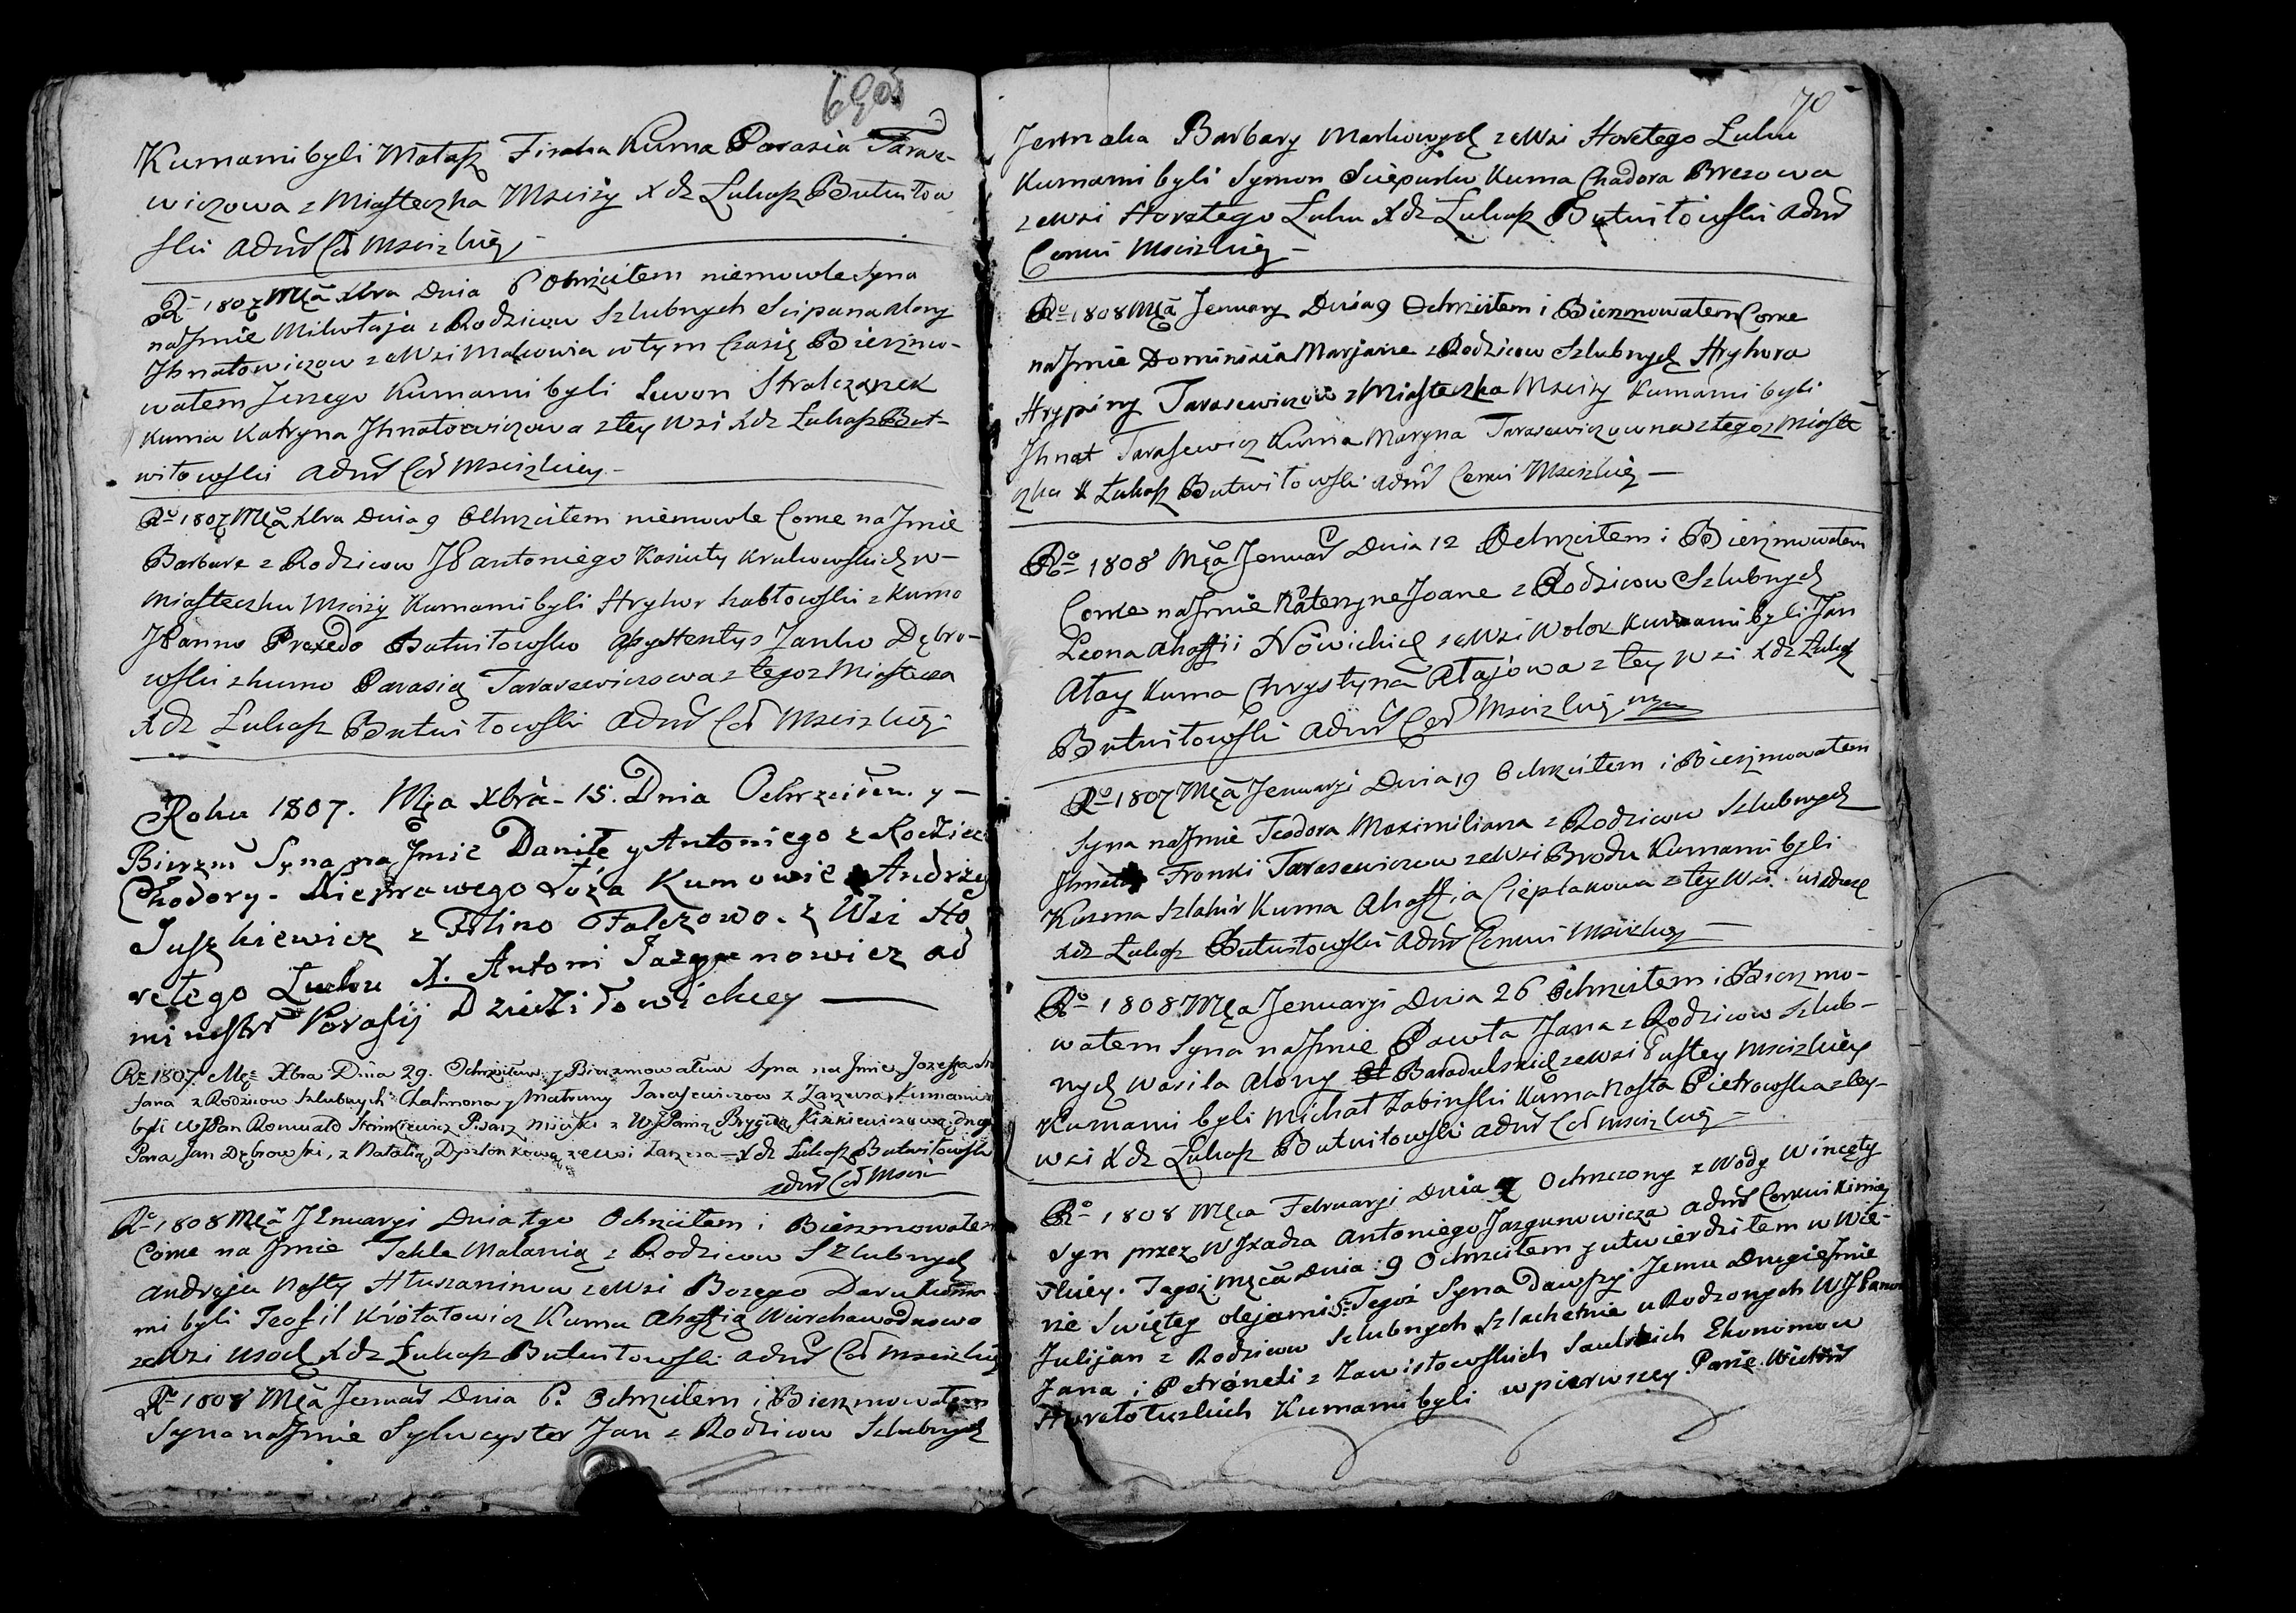 69 об
Kumami byli Matasz Firaha Kuma Parasia Taraz-
wiczowa z Miasteczka Msciży Xdz Łukasz Butwiłow
ski Admr Cer Mscizkiey
Ro 1807 Mca Xbra Dnia 6 Ochrzciłem niemowle Syna
na Jmie Mikołaja z Rodzicow Szlubnych Scipana Alony
Jhnatowiczow ze Wsi Makowia w tym Czasię Bierzmo-
wałem Jerzego Kumami byli Lewon Stralczanek
Kuma Katryna Jhnatowiczowa z tey Wsi Xdz Łukasz But-
wiłowski Admr Cer Msciżkiey
Ro 1807 Mca Xbra Dnia 9 Ochrzciłem niemowle Corke na Jmie
Barbare z Rodzicow JP Antoniego Kasiuty Krukowskich w
Miasteczku Msciży Kumami byli Hryhor Szabłowski z Kumo
JPanno Praxedo Butwiłowsko Assystentys Janko Dębro-
wski z kumo Parasię Tarasewiczowa z tegoz Miasteczka
Xdz Łukasz Butwiłowski Admr Cer Msciżkiey
Roku 1807. Mca Xbra 15. Dnia Ochrzciłem y
Bierzm Syna na Jmie Daniłę y Antoniego z Rodzic
Chodory. Nieprawego Łoża Kumowie Andrzey
Juszkiewicz z Filino Falczowo. z Wsi Ho
retego Łuhu X. Antoni Jazgunowicz ad
ministr Parafij Dziedziłowickiey
Ro 1807 Mca Xbra Dnia 29. Ochrzciłem y Bierzmowałem Syna na Jmie Jozefa Ste
fana z Rodzicow Szlubnych Chalimona y Matruny Tarasewiczow z Zarzecza Kumami
byli WJPan Romuald Hrinkiewicz Pisarz Mieyski z WJPanią Brygidą Kiszkiewiczową drugi
Para Jan Dębrowski, z Natalią Dyszlonkową ze wsi Zarzecza Xdz Łukasz Butwiłowski
Admr Cer Msciż
Ro 1808 Mca JEnuaryi Dnia 1go Ochrzciłem i Bierzmowałem
Corke na Jmie Tekle Małanią z Rodzicow Szlubnych
Andreja Nasty Hłuszaninow ze Wsi Bozego Daru Kuma
mi byli Teofil Krotatowicz Kuma Ahafią Wierchawodkowa
ze Wsi Usod Xdz Łukasz Butwiłowski Admr Cer Msciżkiey
Ro 1808 Mca Jenuar Dnia 6. Ochrzciłem i Bierzmowałem
Syna na Jmie Sylwcyster Jan z Rodzicow Szlubnych
70
Jermaka Barbary Markowych ze Wsi Horetego Łuhu
Kumami byli Symon Sciepurko Kuma Chadora Brezowa
ze Wsi Horetego Łuhu Xdz Łukasz Butwiłowski Admr
Cerkwi Msciżkiey
Ro 1808 Mca Jenuary Dnia 9 Ochrzciłem i Bierzmowałem Corke
na Jmie Dominicia Marjane z Rodzicow Szlubnych Hryhora
Hrypiny Tarasewiczow z Miasteczka Msciży Kumami byli
Jhnat Tarasewicz Kuma Maryna Tarasewiczowna z tegoz Miaste
czka X Łukasz Butwiłowski Admr Cerkwi Msciżkiey
Ro 1808 Mca Jenuar Dnia 12 Ochrzciłem i Bierzmowałem
Corke na Jmie Katerzyne Joane z Rodzicow Szlubnych
Leona Ahafii Nowickich ze Wsi Wolok Kumami byli Jan
Ałay Kuma Chrystyna Ałajowa z tey Wsi Xdz Łukasz
Butwiłowski Admr Cer Msciżkiey
Ro 1807 Mca Jenuaryi Dnia 19 Ochrzciłem i Bierzmowałem
Syna na Jmie Teodora Maximiliana z Rodzicow Szlubnych
Fronki Tarasewiczow ze Wsi Brodu Kumami byli
Kuzma Szlahir Kuma Ahaffia Cieplakowa z tey Wsi
Xdz Łukasz Butwiłowski Admr Cerkwi Msciżkiey
Ro 1808 Mca Jenuaryi Dnia 26 Ochrzciłem i Bierzmo-
wałem Syna na Jmie Pawła Jana z Rodzicow Szlub-
nych Wasila Alony Baradulskich ze Wsi Pustey Msciżkiey
Kumami byli Michał Żabinski Kuma Nasta Pietrowska z tey
Wsi Xdz Łukasz Butwiłowski Admr Cer Msciżkiey
Ro 1808 Mca Februaryi Dnia 7 Ochrzczony z Wody Wincęty
Syn przez WJxadza Antoniego Jazgunowicza Admr Cerkwi Kimie
skiey. Tegoż Mca Dnia 9 Ochrzciłem y utwierdziłem w Wie-
rie Swiętey olejami S: Tegoż Syna dawszy Jemu Drugie Jmie
Julijan z Rodzicow Szlubnych Szlachetnie uRodzonych WJPanow
Jana i Petroneli z Zawistowskich Sawickich Ekonomow
Horetołuzkich Kumami byli w pierwszey Parie Wictor